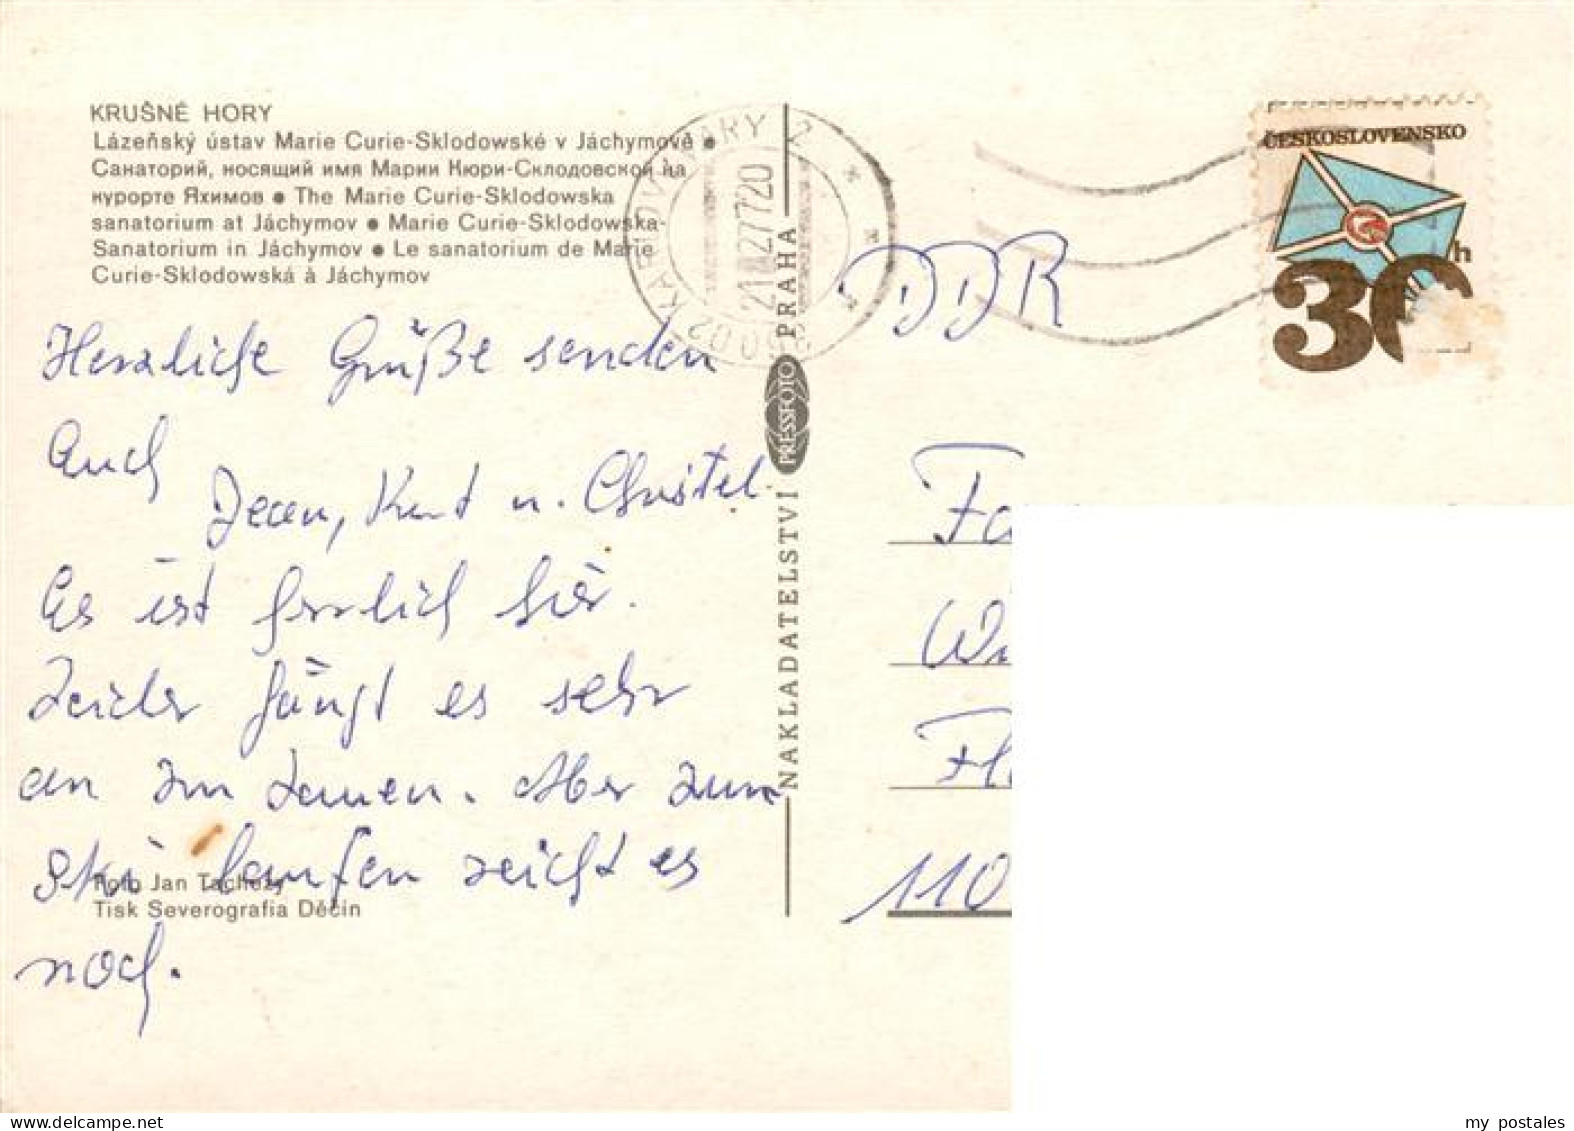 KRUŠNÉ HORY
Lázeňský ústav Marie Curie-Sklodowské v Jáchymově ●
Санаторий, носящий имя Марии Кюри-Склодовской на
курорте Яхимов ● The Marie Curie-Sklodowska
sanatorium at Jáchymov ● Marie Curie-Sklodowska-
Sanatorium in Jáchymov ● Le sanatorium de Marie
Curie-Sklodowská à Jáchymov
Herzliche Grüße senden
Euch
Kurt u. Christel.
Es ist herrlich hier.
Leider fängt es sehr
an zu tauen. Aber zum
Ski laufen reicht es
noch.
Foto Jan Tachezy
Tisk Severografia Děčín
NAKLADATELSTVÍ PRESSFOTO PRAHA
KARLOVY VARY 2
DDR
ČESKOSLOVENSKO
30 h
Fa
Wi
110
my postales